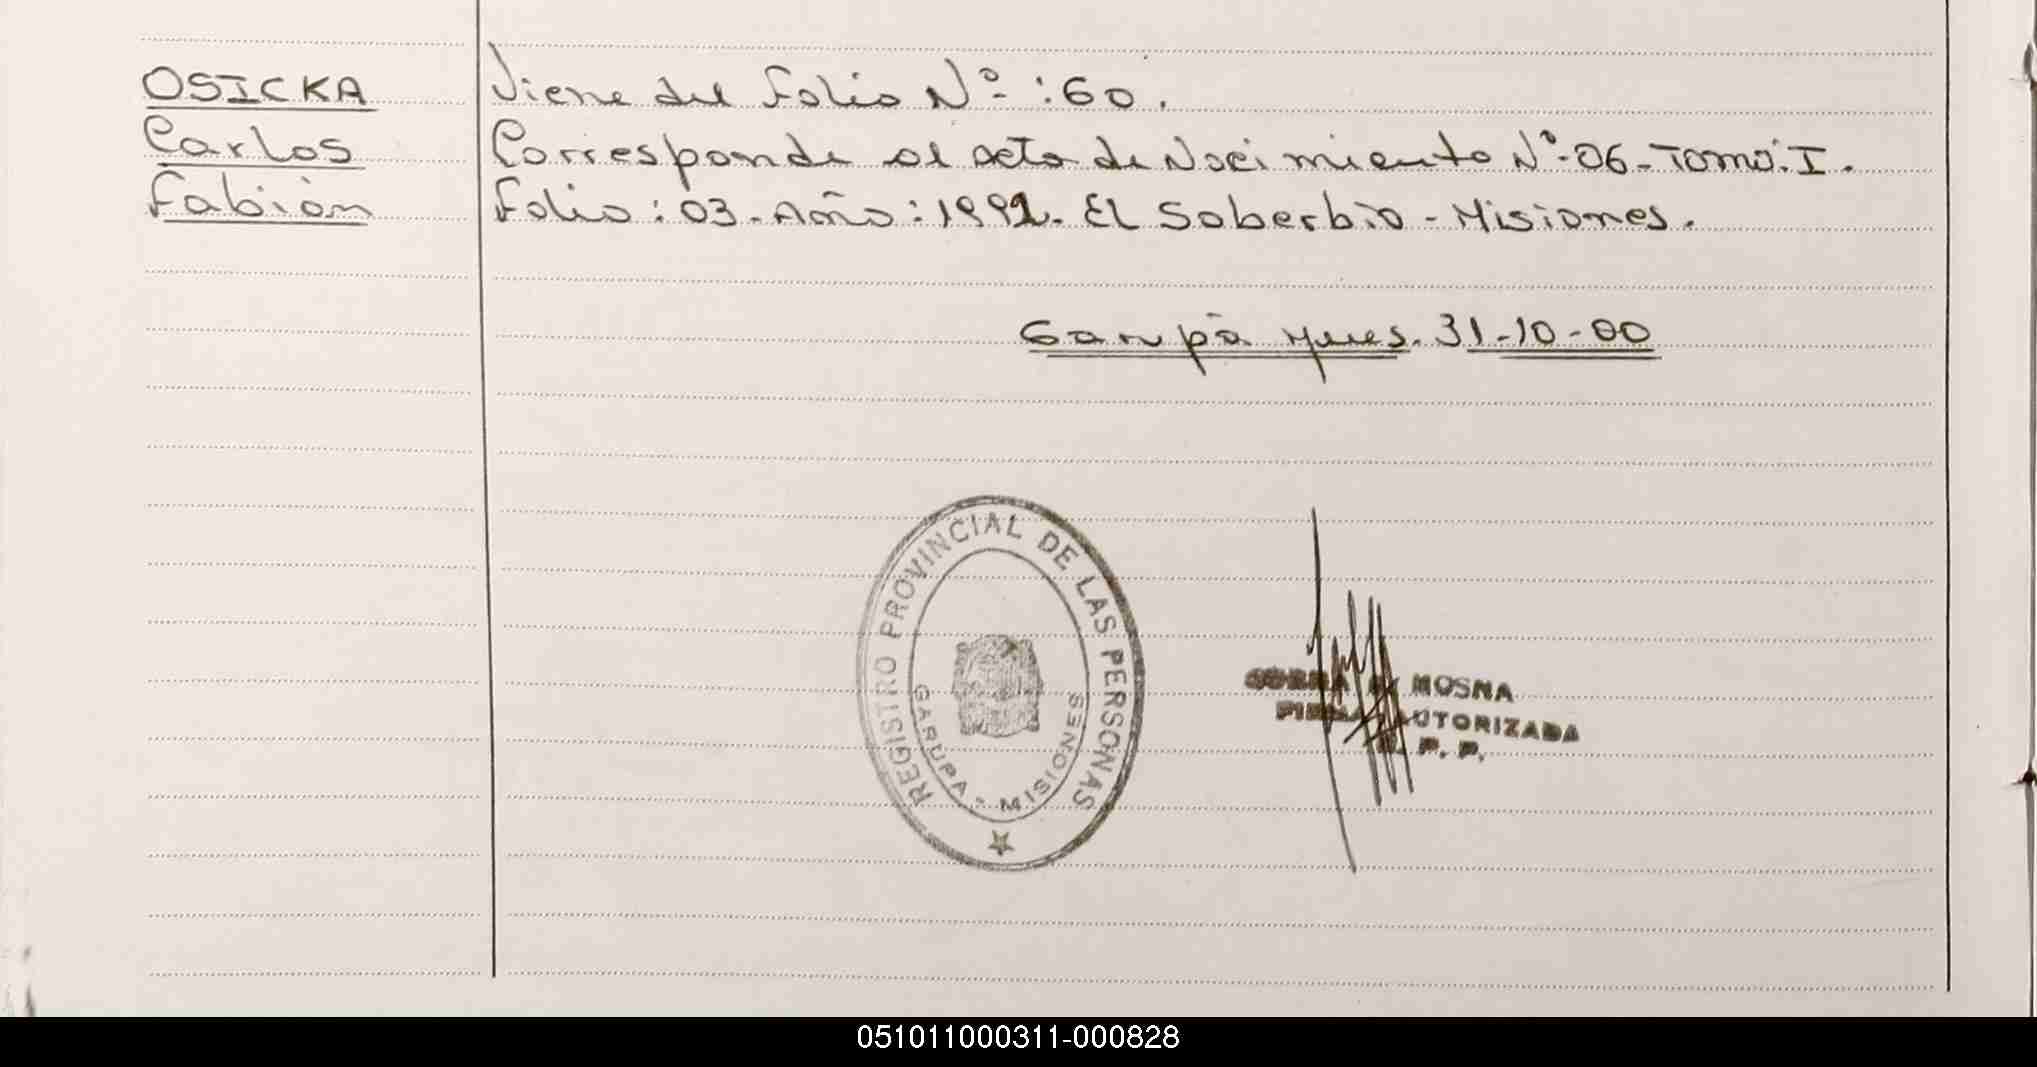 OSICKA
Carlos
Fabián
Viene del Folio Nº: 60.
Corresponde al acta de Nacimiento Nº. 06 - Tomo: I.
Folio: 03 - Año: 1992. El Soberbio - Misiones.
Garupá Mnes. 31-10-00
REGISTRO PROVINCIAL DE LAS PERSONAS
GARUPA - MISIONES
MOSNA
FIRMA AUTORIZADA
P. P.
051011000311-000828